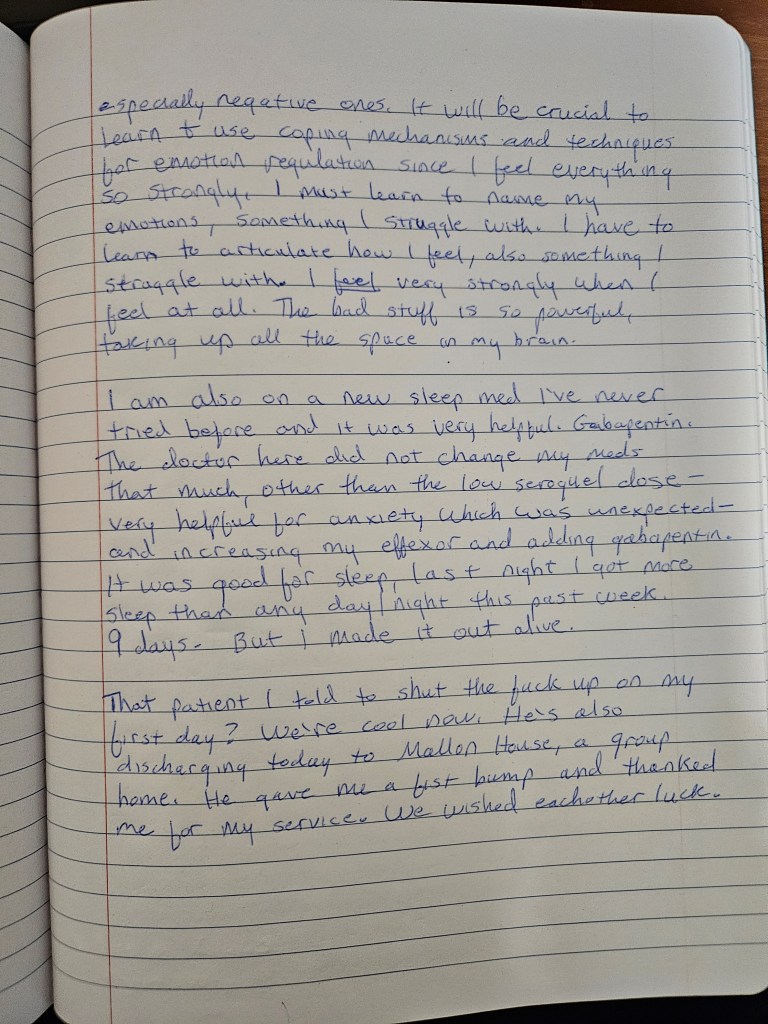 especially negative ones. It will be crucial to
learn to use coping mechanisms and techniques
for emotion regulation since I feel everything
so strongly. I must learn to name my
emotions, something I struggle with. I have to
learn to articulate how I feel, also something I
struggle with. I feel very strongly when I
feel at all. The bad stuff is so powerful,
taking up all the space in my brain.
I am also on a new sleep med I've never
tried before and it was very helpful. Gabapentin.
The doctor here did not change my meds
that much, other than the low seroquel dose –
very helpful for anxiety which was unexpected –
and increasing my effexor and adding gabapentin.
It was good for sleep, last night I got more
sleep than any day/night this past week.
9 days. But i made it out alive.
That patient I told to shut the fuck up on my
first day? We're cool now. He's also
discharging today to Mallon House, a group
home. He gave me a fist bump and thanked
me for my service. We wished eachother luck.